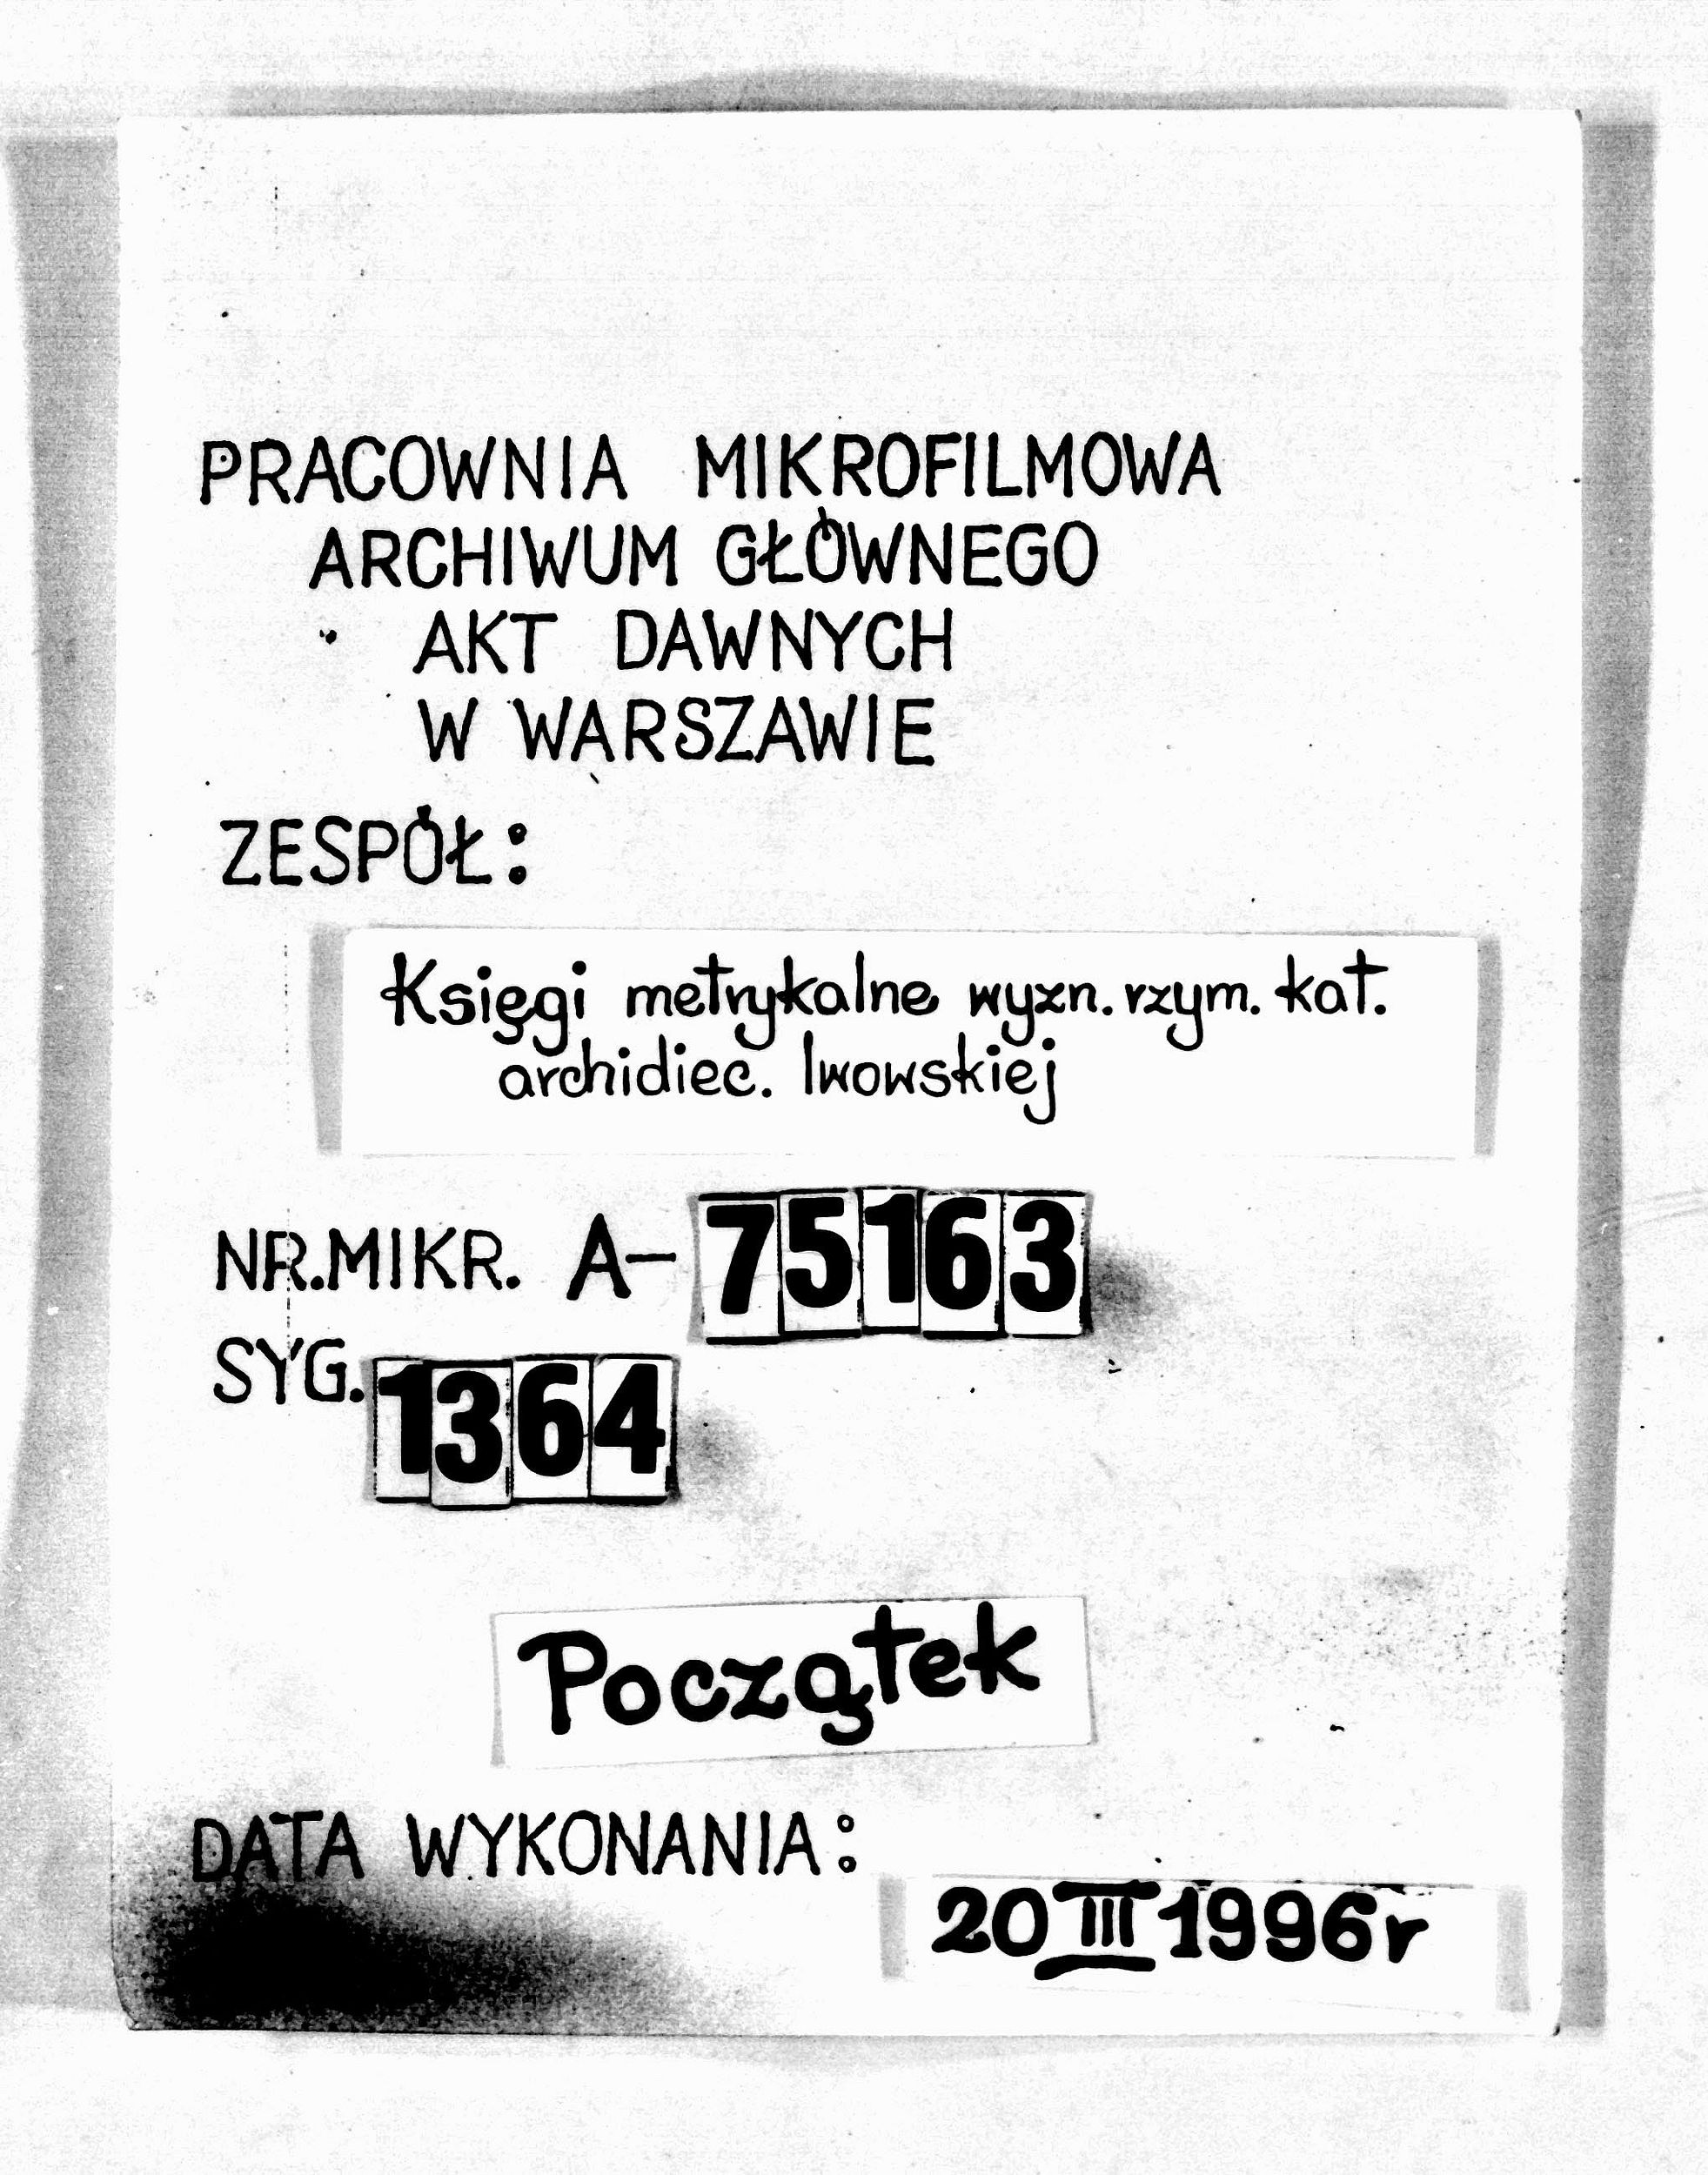 PRACOWNIA MIKROFILMOWA
ARCHIWUM GŁÓWNEGO
AKT DAWNYCH
W WARSZAWIE
ZESPÓŁ:
Księgi metrykalne wyzn. rzym. kat.
archidiec. lwowskiej
NR. MIKR. A-75163
SYG. 1364
Początek
DATA WYKONANIA:
20 III 1996r